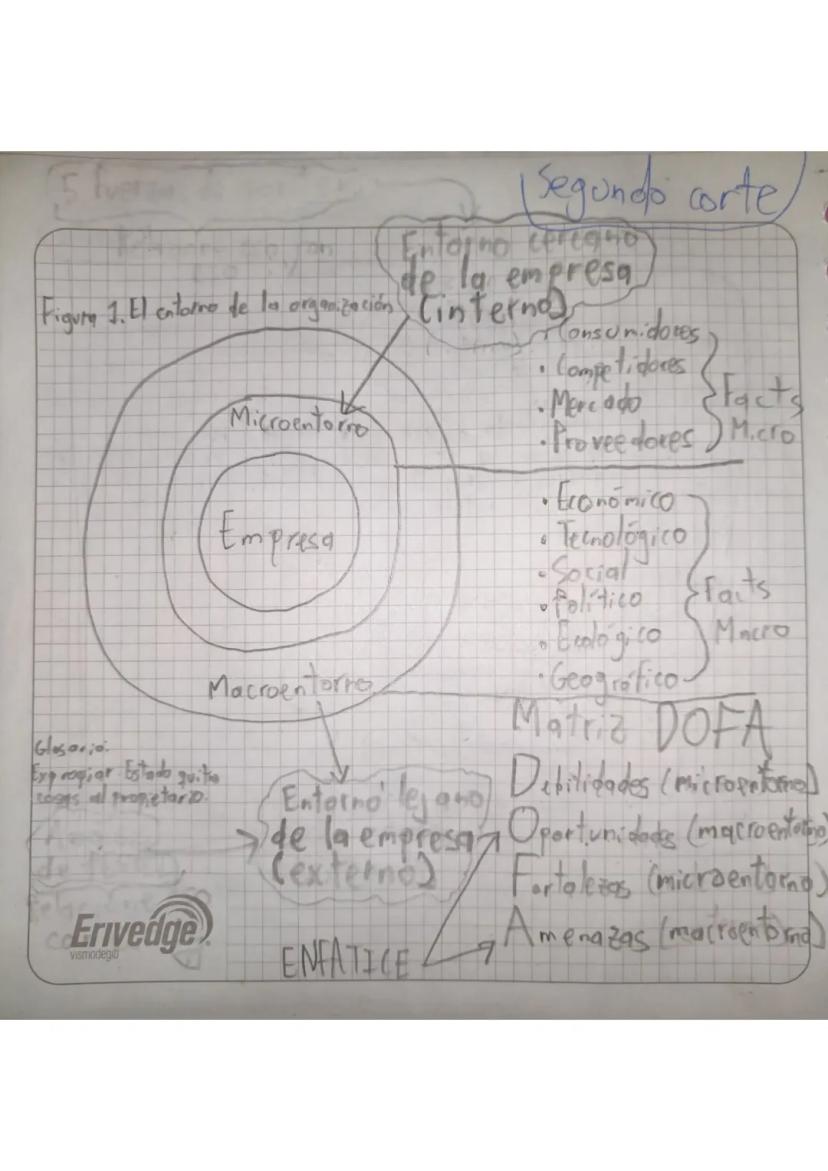 Segundo corte
Entorno cercano
de la empresa
(interno)
Figura 1. El entorno de la organización
Consumidores
· Competidores
· Mercado
· Proveedores
Facts
Micro
Microentorno
Empresa
· Económico
· Tecnológico
· Social
· Político
· Ecológico
· Geográfico
Facts
Macro
Macroentorno
Matriz DOFA
Glosario:
Expropiar: Estado quita
cosas al propietario.
Entorno lejano
de la empresa
(externo)
Debilidades (microentorno)
Oportunidades (macroentorno)
Fortalezas (microentorno)
Amenazas (macroentorno)
ENFATICE
Erivedge
vismodegid